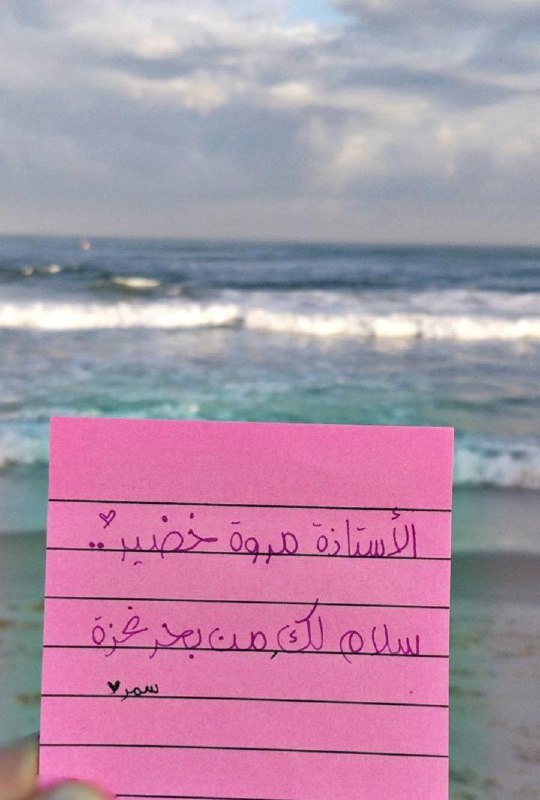 الأستاذة مروة خضير.. ♡
سلام لكِ من بحر غزة
سمر ♥